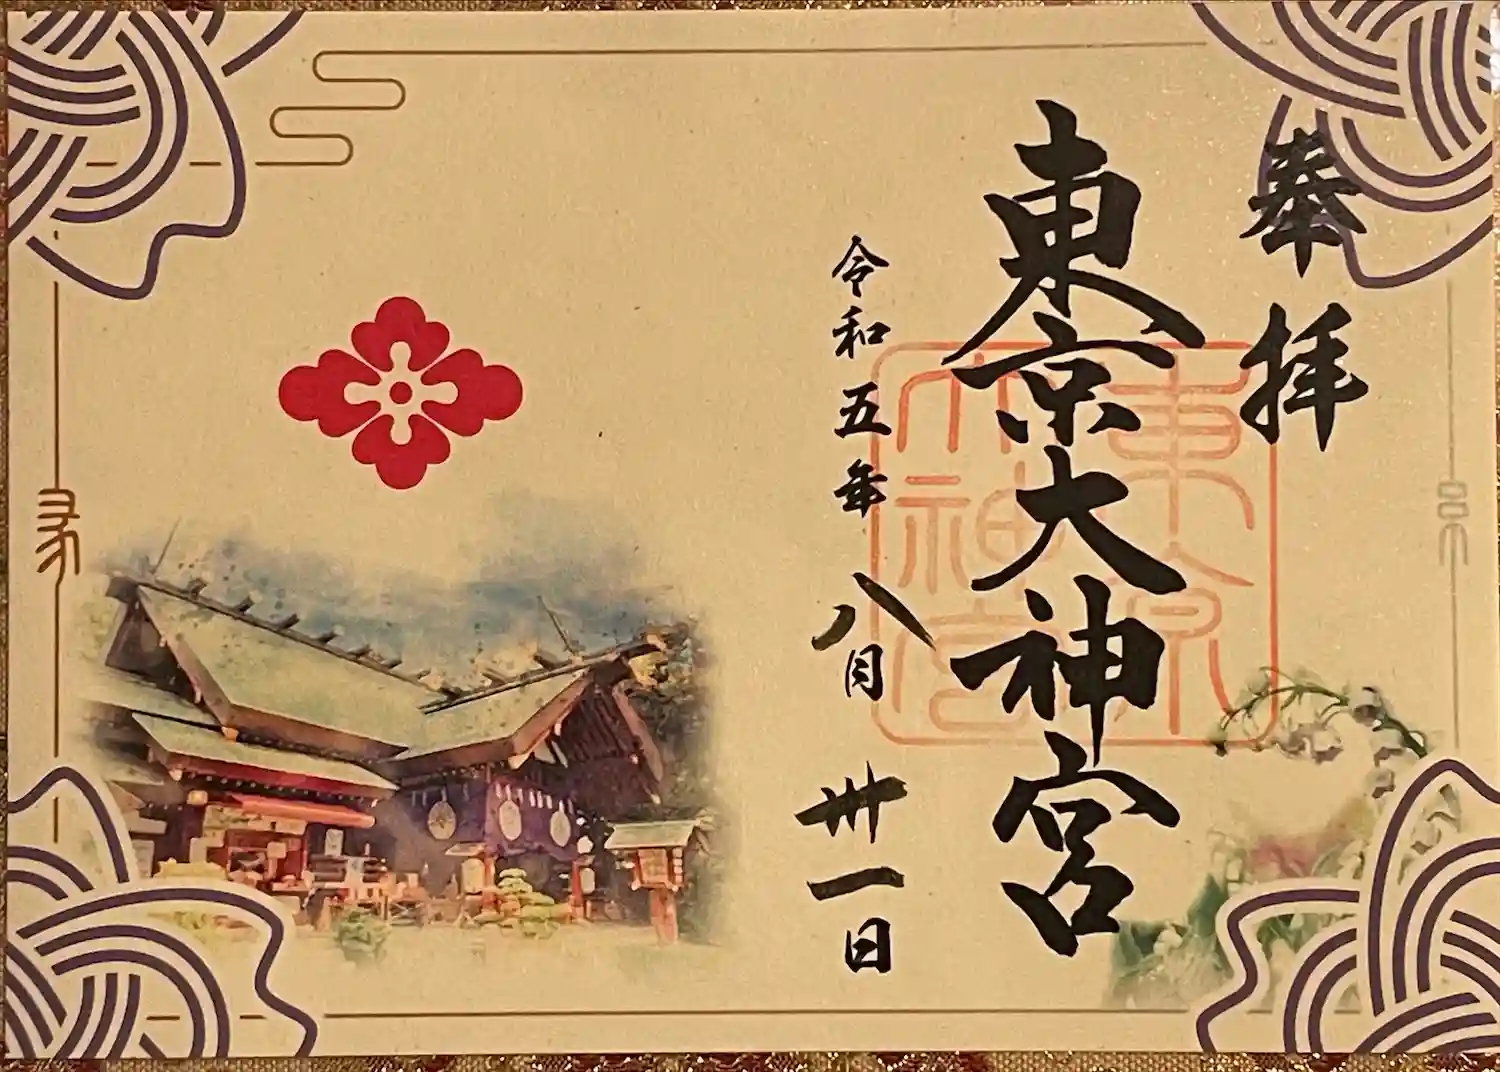 奉拝
東京大神宮
令和五年八月卅一日
東京
大神宮